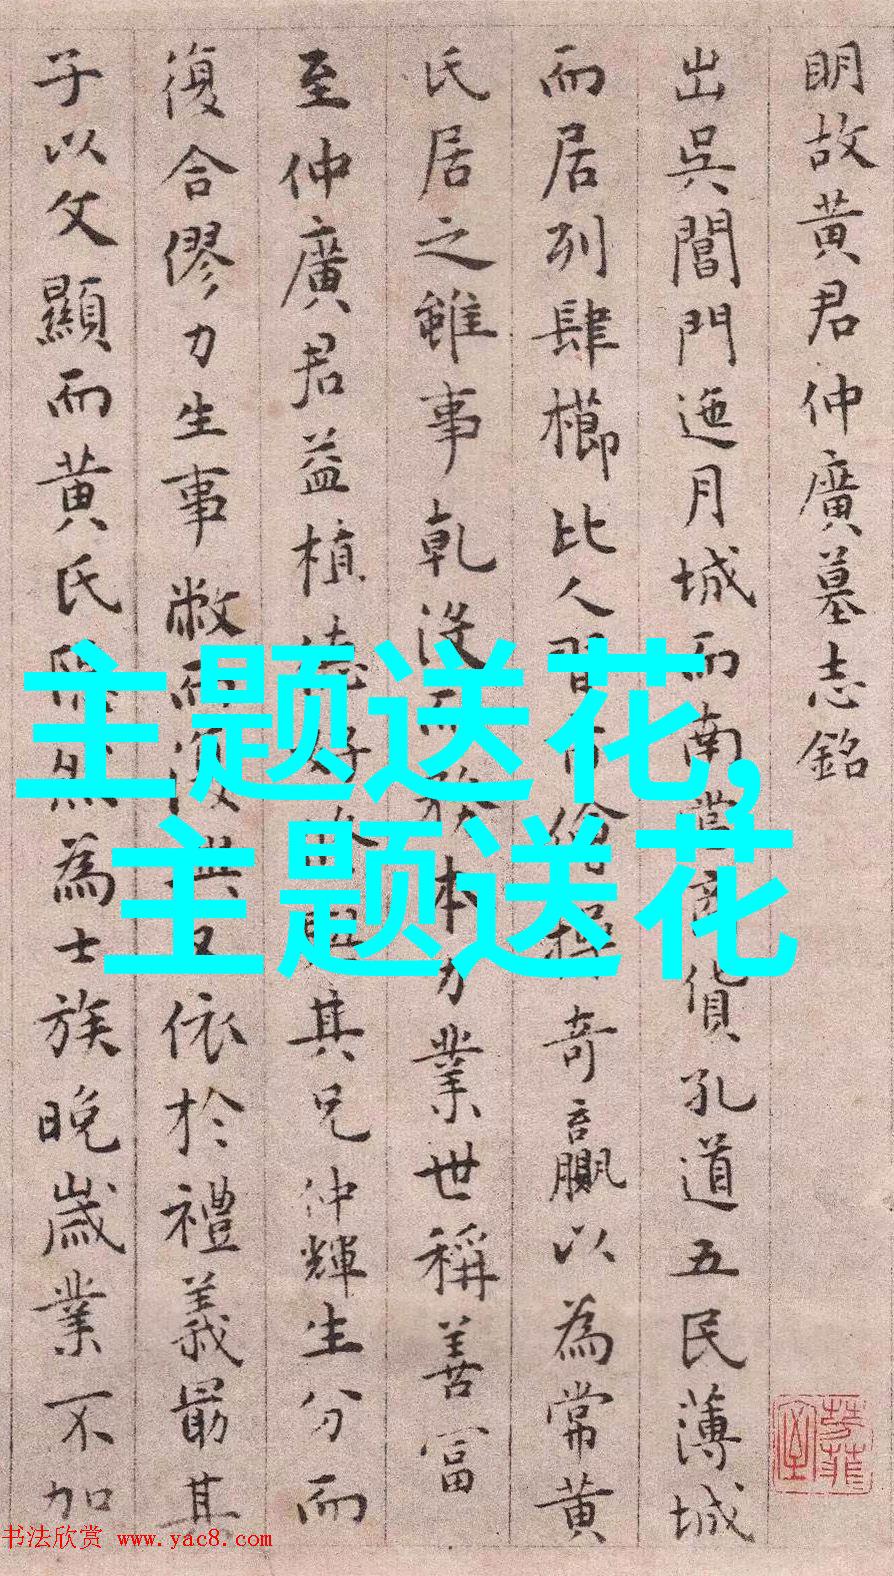 明故黄君仲廣墓志銘
出吳閶門迤月城而南貨孔道五民薄城
而居列肆櫛比人習奇贏以為常黄
氏居之雖事乾没而務本力業世稱善富
至仲廣君益植德好其兄仲輝生分而
復合僇力生事敝而復興又依於禮義最其
子以文顯而黄氏隱然為士族晚歲業不加
主题送花,
主题送花
书法欣赏 www.yac8.com